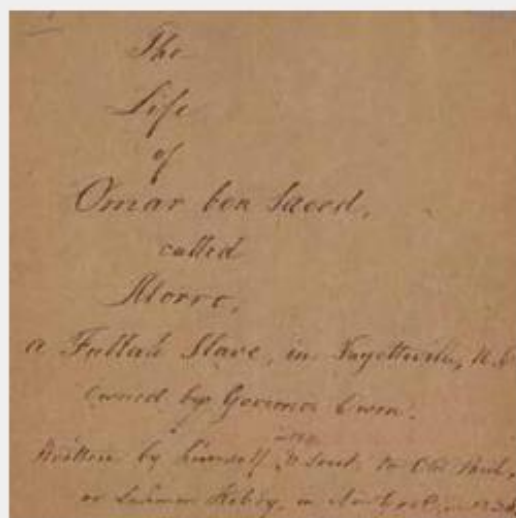 The
Life
of
Omar ben Saeed,
called
Morro,
a Fullah Slave, in Fayetteville, N.C
Owned by Governor Owen.
Written by himself in 1831 & sent to Old Paul,
or Lahmen Kebby, in New York, in 1836,